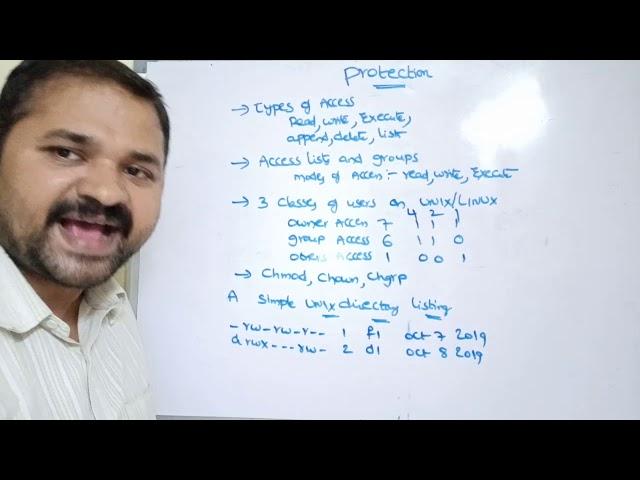 Protection
→ Types of Access
Read, write, Execute,
append, delete, list
→ Access lists and groups
modes of Access :- read, write, Execute
→ 3 classes of users on UNIX/LINUX
4 2 1
owner Access 7 1 1 1
group Access 6 1 1 0
others Access 1 0 0 1
→ Chmod, Chown, Chgrp
A simple UNIX directory listing
-rw-rw-r-- 1 f1 oct 7 2019
drwx---rw- 2 d1 oct 8 2019